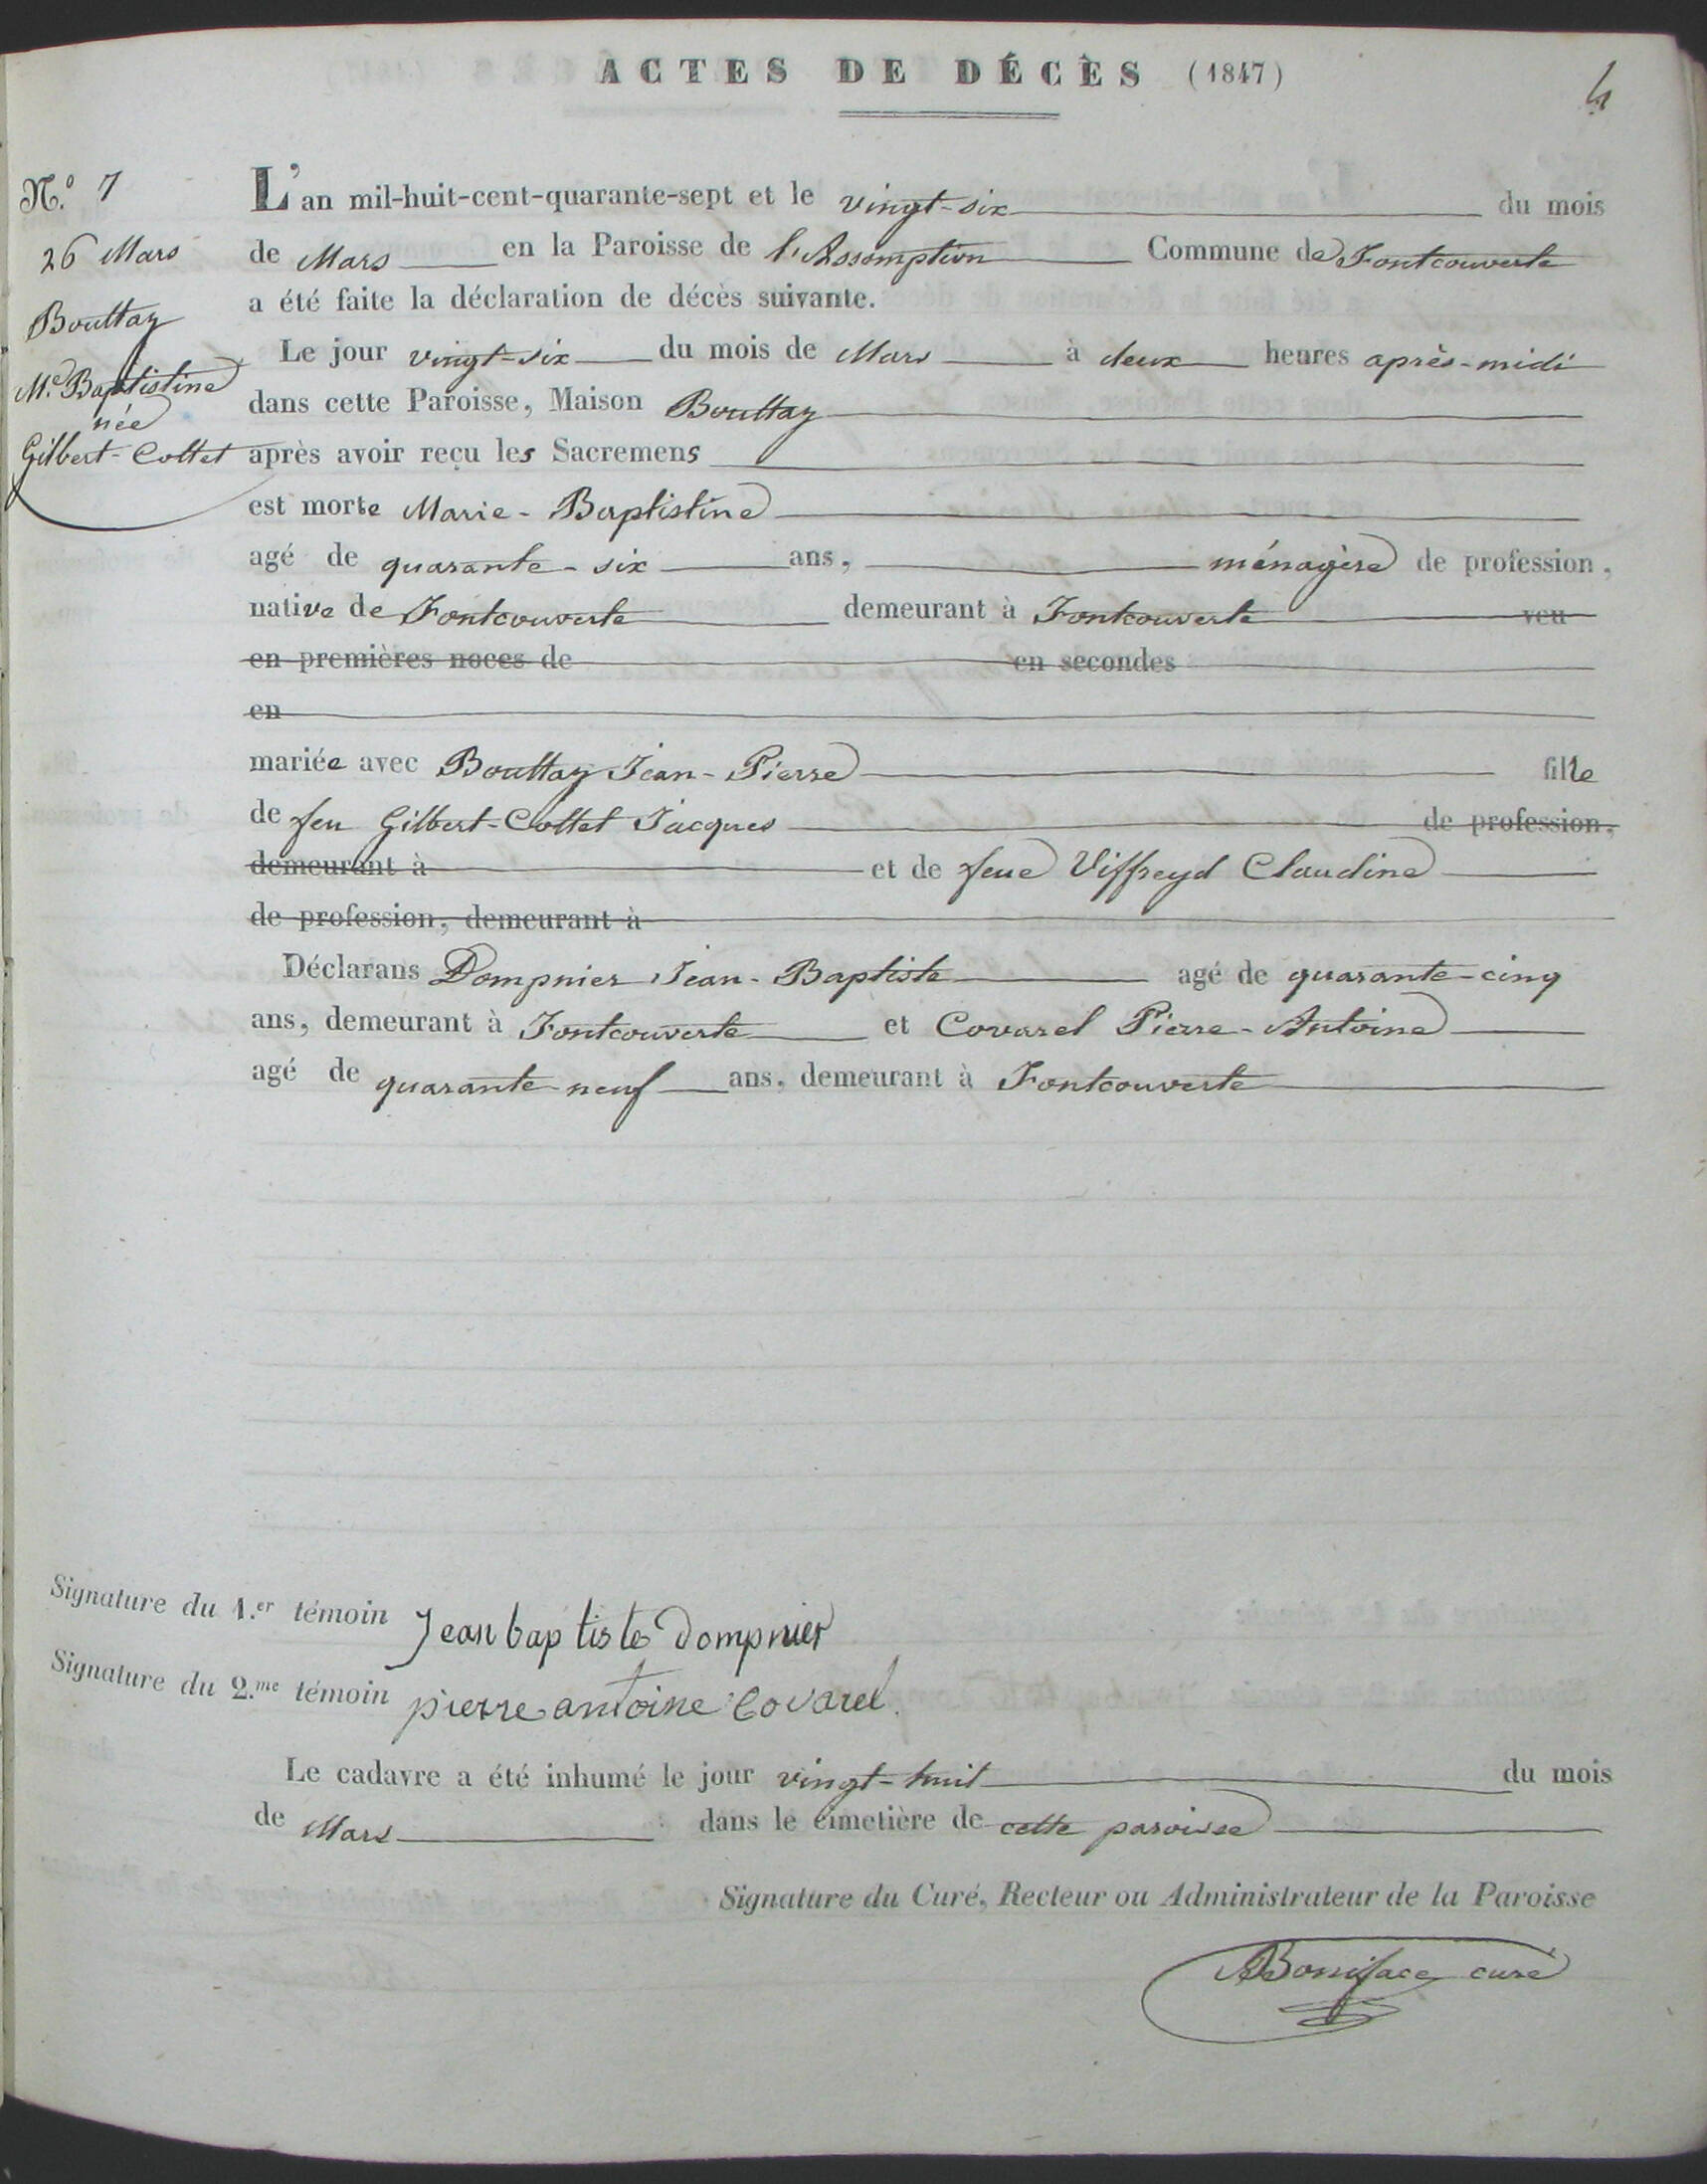 ACTES DE DÉCÈS (1847)
4
N.º 7
26 Mars
Bouttaz
M.e Baptistine
née
Gilbert-Collet
L'an mil-huit-cent-quarante-sept et le vingt-six du mois
de Mars en la Paroisse de l'Assomption Commune de Fontcouverte
a été faite la déclaration de décès suivante.
Le jour vingt-six du mois de Mars à deux heures après-midi
dans cette Paroisse, Maison Bouttaz
après avoir reçu les Sacremens
est morte Marie-Baptistine
agé de quarante-six ans, ménagère de profession,
native de Fontcouverte demeurant à Fontcouverte veu
en premières noces de en secondes
en
mariée avec Bouttaz Jean-Pierre fille
de feu Gilbert-Collet Jacques de profession,
demeurant à et de feue Viffreyd Claudine
de profession, demeurant à
Déclarans Dompnier Jean-Baptiste agé de quarante-cinq
ans, demeurant à Fontcouverte et Covarel Pierre-Antoine
agé de quarante-neuf ans, demeurant à Fontcouverte
Signature du 1.er témoin Jean baptiste Dompnier
Signature du 2.me témoin pierre antoine Covarel.
Le cadavre a été inhumé le jour vingt-huit du mois
de Mars dans le cimetière de cette paroisse
Signature du Curé, Recteur ou Administrateur de la Paroisse
Boniface curé